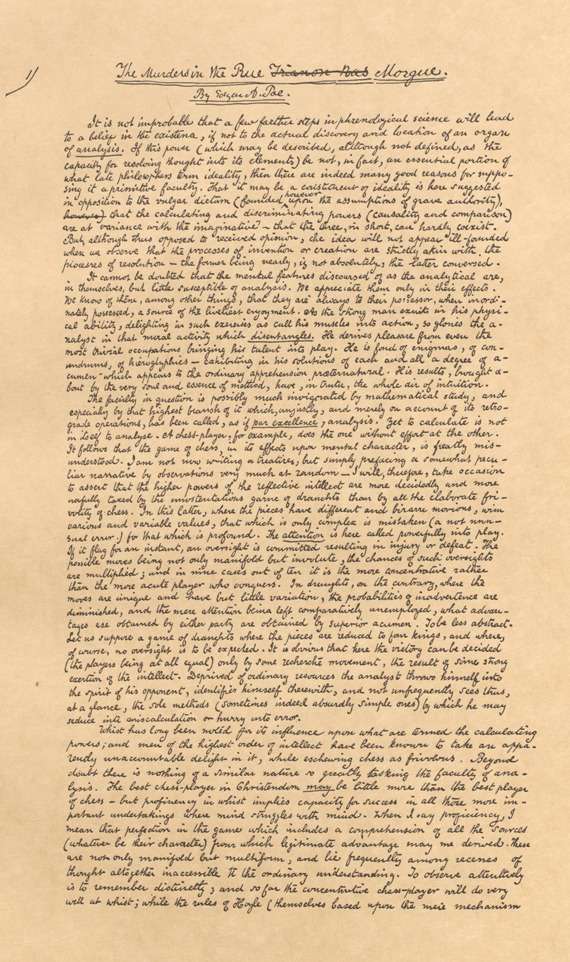 1)
The Murders in the Rue Trianon Bas Morgue.
By Edgar A. Poe.
It is not improbable that a few farther steps in phrenological science will lead
to a belief in the existence, if not to the actual discovery and location of an organ
of analysis. If this power (which may be described, although not defined, as the
capacity for resolving thought into its elements) be not, in fact, an essential portion of
what late philosophers term ideality, then there are indeed many good reasons for suppo-
sing it a primitive faculty. That it may be a constituent of ideality is here suggested
in opposition to the vulgar dictum (founded, however, upon the assumptions of grave authority),
however) that the calculating and discriminating powers (causality and comparison)
are at variance with the imaginative — that the three, in short, can hardly coexist.
But, although thus opposed to received opinion, the idea will not appear ill-founded
when we observe that the processes of invention or creation are strictly akin with the
processes of resolution — the former being nearly, if not absolutely, the latter conversed.
It cannot be doubted that the mental features discoursed of as the analytical are,
in themselves, but little susceptible of analysis. We appreciate them only in their effects.
We know of them, among other things, that they are always to their possessor, when inordi-
nately possessed, a source of the liveliest enjoyment. As the strong man exults in his physi-
cal ability, delighting in such exercises as call his muscles into action, so glories the a-
nalyst in that moral activity which disentangles. He derives pleasure from even the
most trivial occupations bringing his talent into play. He is fond of enigmas, of con-
undrums, of hieroglyphics — exhibiting in his solutions of each and all a degree of a-
cumen which appears to the ordinary apprehension præternatural. His results, brought a-
bout by the very soul and essence of method, have, in truth, the whole air of intuition.
The faculty in question is possibly much invigorated by mathematical study, and
especially by that highest branch of it which, unjustly, and merely on account of its retro-
grade operations, has been called, as if par excellence, analysis. Yet to calculate is not
in itself to analyse. A chess-player, for example, does the one without effort at the other.
It follows that the game of chess, in its effects upon mental character, is greatly mis-
understood. I am not now writing a treatise, but simply prefacing a somewhat pecu-
liar narrative by observations very much at random — I will, therefore, take occasion
to assert that the higher powers of the reflective intellect are more decidedly and more
usefully taxed by the unostentatious game of draughts than by all the elaborate fri-
volity of chess. In this latter, where the pieces have different and bizarre motions, with
various and variable values, that which is only complex is mistaken (a not unu-
sual error) for that which is profound. The attention is here called powerfully into play.
If it flag for an instant, an oversight is committed resulting in injury or defeat. The
possible moves being not only manifold but involute, the chances of such oversights
are multiplied; and in nine cases out of ten it is the more concentrative rather
than the more acute player who conquers. In draughts, on the contrary, where the
moves are unique and have but little variation, the probabilities of inadvertence are
diminished, and the mere attention being left comparatively unemployed, what advan-
tages are obtained by either party are obtained by superior acumen. To be less abstract.
Let us suppose a game of draughts where the pieces are reduced to four kings, and where,
of course, no oversight is to be expected. It is obvious that here the victory can be decided
(the players being at all equal) only by some recherché movement, the result of some strong
exertion of the intellect. Deprived of ordinary resources the analyst throws himself into
the spirit of his opponent, identifies himself therewith, and not unfrequently sees thus,
at a glance, the sole methods (sometimes indeed absurdly simple ones) by which he may
seduce into miscalculation or hurry into error.
Whist has long been noted for its influence upon what are termed the calculating
powers; and men of the highest order of intellect have been known to take an appa-
rently unaccountable delight in it, while eschewing chess as frivolous. Beyond
doubt there is nothing of a similar nature so greatly tasking the faculty of ana-
lysis. The best chess-player in Christendom may be little more than the best player
of chess — but proficiency in whist implies capacity for success in all those more im-
portant undertakings where mind struggles with mind. When I say proficiency, I
mean that perfection in the game which includes a comprehension of all the sources
(whatever be their character) from which legitimate advantage may be derived. These
are not only manifold but multiform, and lie frequently among recesses of
thought altogether inaccessible to the ordinary understanding. To observe attentively
is to remember distinctly; and so far the concentrative chess-player will do very
well at whist; while the rules of Hoyle (themselves based upon the mere mechanism